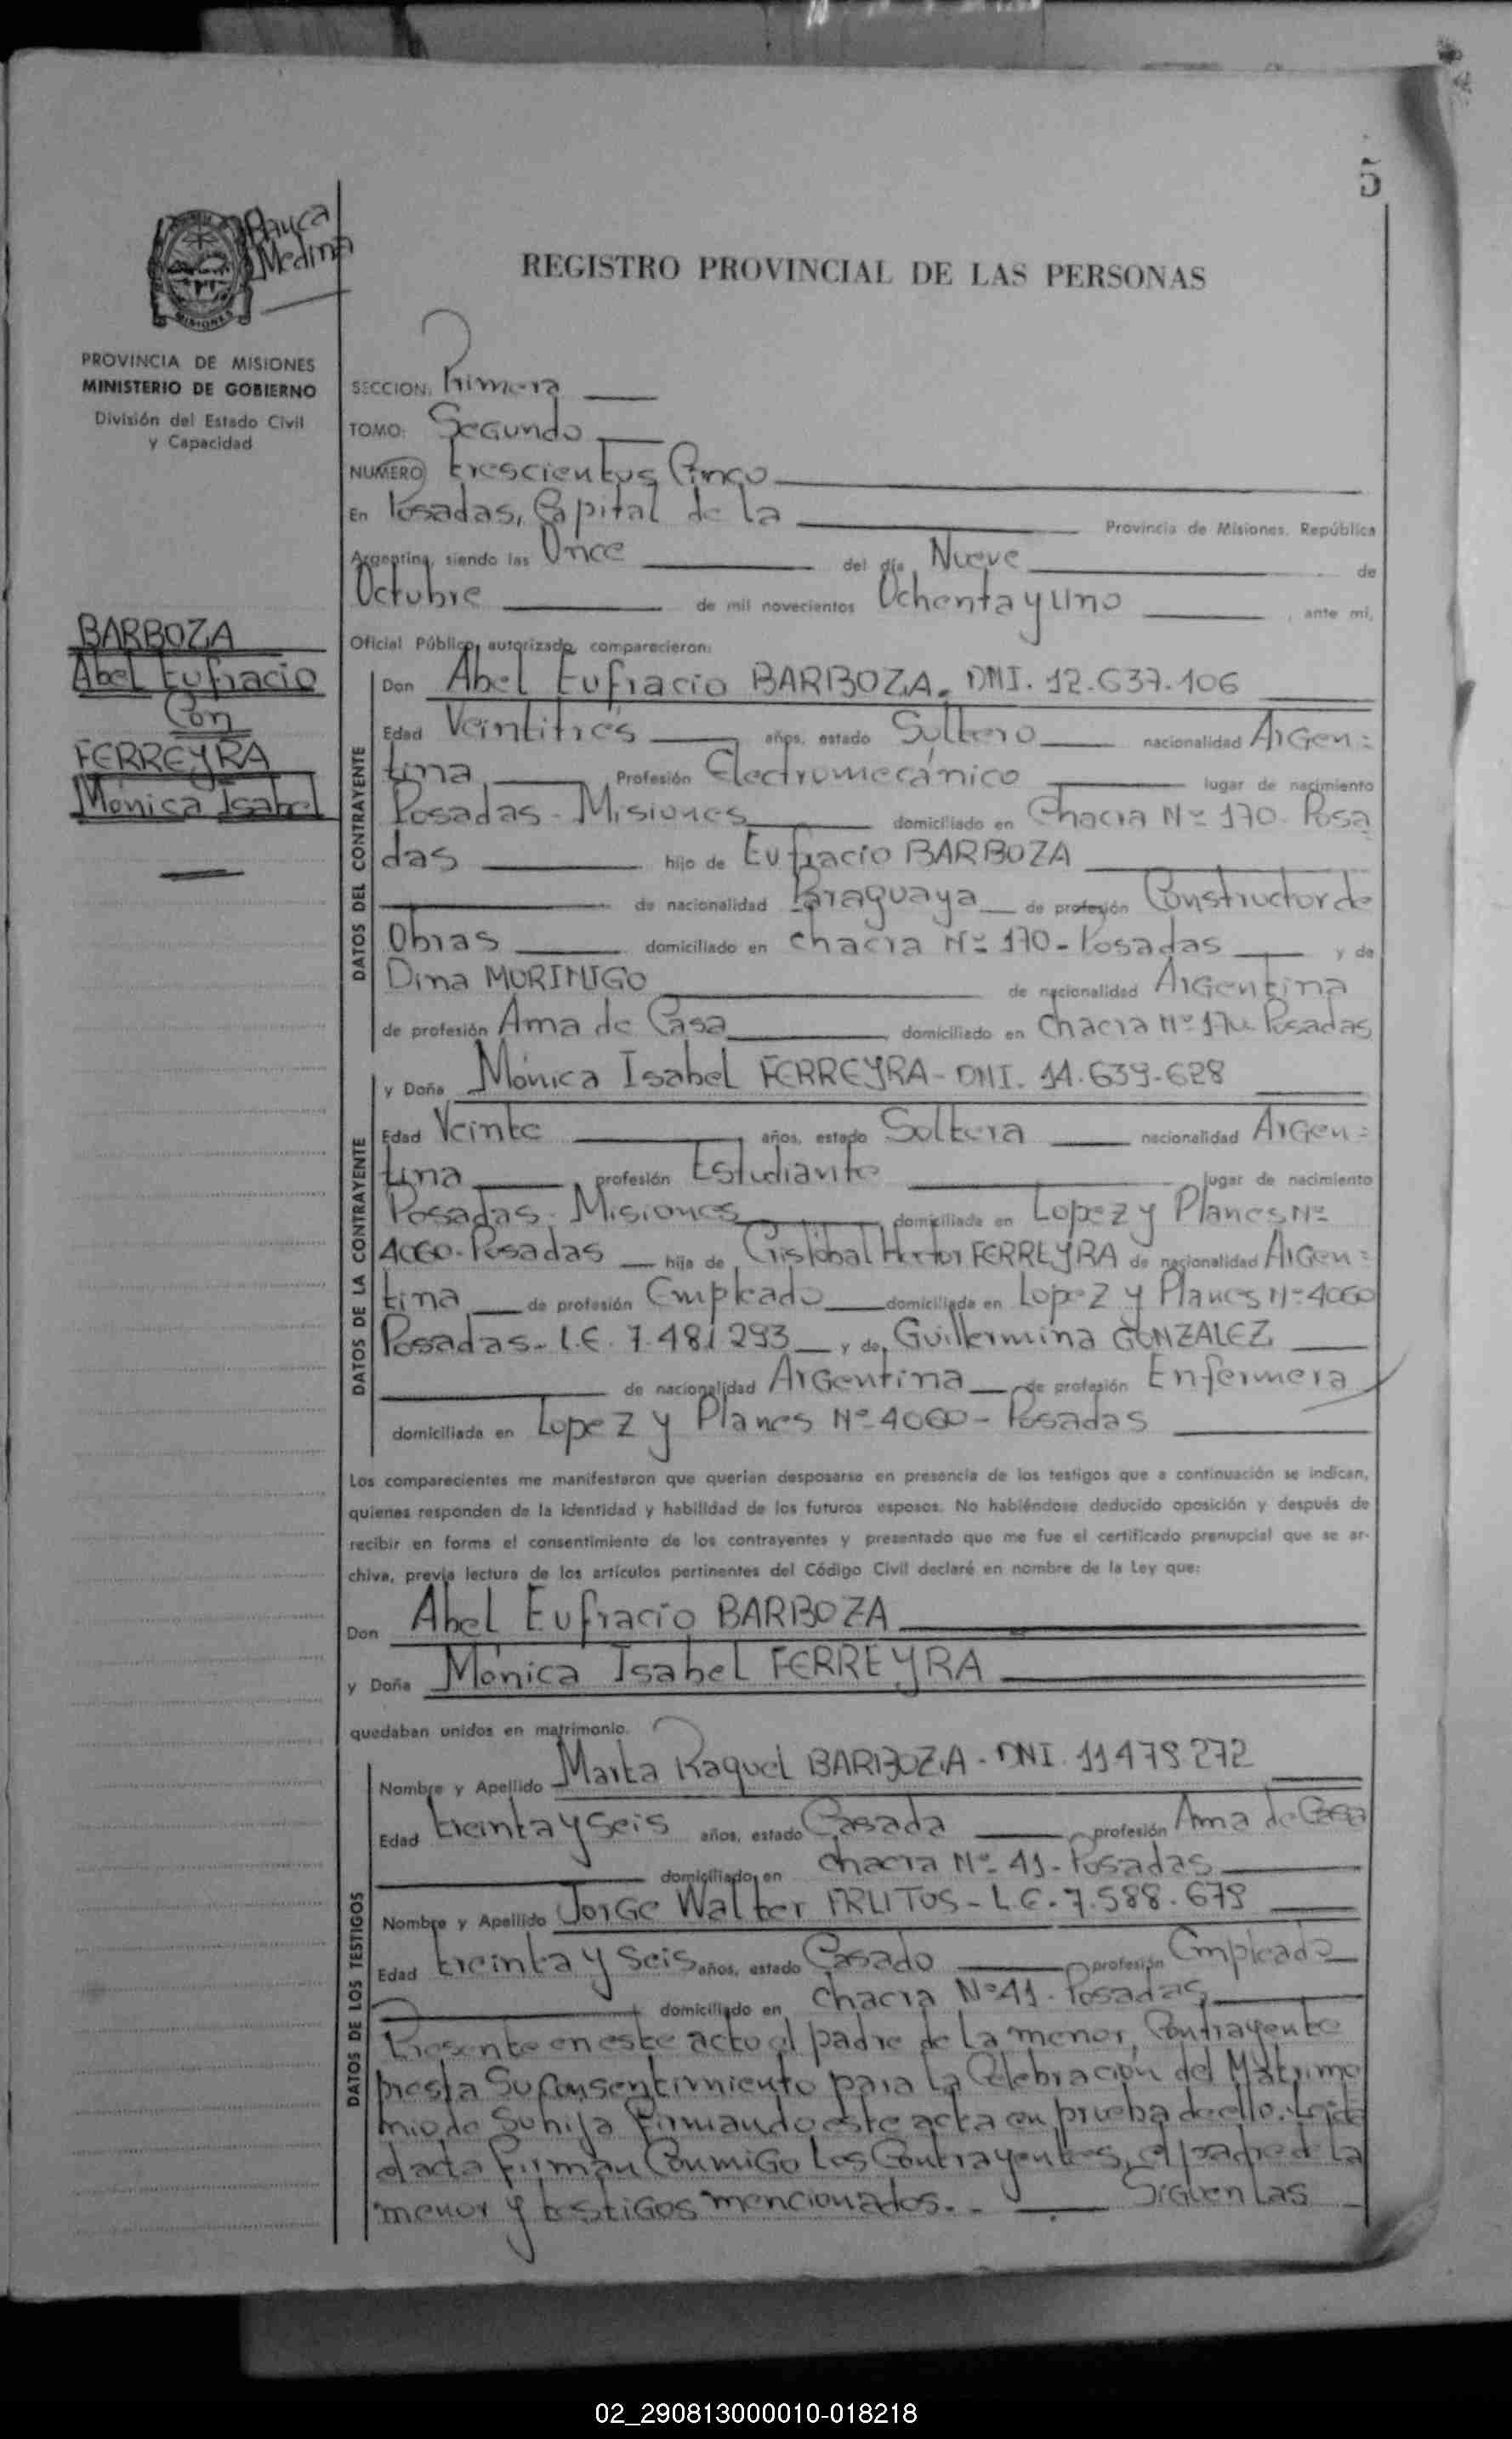 5
Medina
MISIONES
REGISTRO PROVINCIAL DE LAS PERSONAS
PROVINCIA DE MISIONES
MINISTERIO DE GOBIERNO
División del Estado Civil
y Capacidad
SECCION: Primera
TOMO: Segundo
NUMERO trescientos Cinco
En Posadas, Capital de la Provincia de Misiones, República
Argentina, siendo las Once del día Nueve de
Octubre de mil novecientos Ochenta y Uno, ante mí,
Oficial Público, autorizado, comparecieron:
BARBOZA
Abel Eufracio
Con
FERREYRA
Mónica Isabel
DATOS DEL CONTRAYENTE
Don Abel Eufracio BARBOZA. DNI. 12.637.106
Edad Veintitrés años, estado Soltero nacionalidad Argen=
tina Profesión Electromecánico lugar de nacimiento
Posadas - Misiones domiciliado en Chacra Nº 170. Posa
das hijo de Eufracio BARBOZA
de nacionalidad Paraguaya de profesión Constructor de
Obras domiciliado en chacra Nº 170 - Posadas y de
Dina MORINIGO de nacionalidad Argentina
de profesión Ama de Casa, domiciliado en Chacra Nº 170 Posadas
DATOS DE LA CONTRAYENTE
y Doña Mónica Isabel FERREYRA - DNI. 14.639.628
Edad Veinte años, estado Soltera nacionalidad Argen=
tina, profesión Estudiante lugar de nacimiento
Posadas. Misiones domiciliada en Lopez y Planes Nº
4060. Posadas hija de Cristobal Hector FERREYRA de nacionalidad Argen=
tina de profesión Empleado domiciliado en Lopez y Planes Nº 4060
Posadas - L.E. 7.481.293 y de Guillermina GONZALEZ
de nacionalidad Argentina de profesión Enfermera
domiciliada en Lopez y Planes Nº 4060 - Posadas
Los comparecientes me manifestaron que querían desposarse en presencia de los testigos que a continuación se indican,
quienes responden de la identidad y habilidad de los futuros esposos. No habiéndose deducido oposición y después de
recibir en forma el consentimiento de los contrayentes y presentado que me fue el certificado prenupcial que se ar-
chiva, previa lectura de los artículos pertinentes del Código Civil declaré en nombre de la Ley que:
Don Abel Eufracio BARBOZA
y Doña Mónica Isabel FERREYRA
quedaban unidos en matrimonio.
DATOS DE LOS TESTIGOS
Nombre y Apellido Marta Raquel BARBOZA - DNI. 11479272
Edad treinta y seis años, estado Casada profesión Ama de Casa
domiciliado en chacra Nº 41 - Posadas
Nombre y Apellido Jorge Walter FRUTOS - L.E. 7.588.679
Edad treinta y seis años, estado Casado profesión Empleado
domiciliado en chacra Nº 41. Posadas
Presente en este acto el padre de la menor, Contrayente
presta su Consentimiento para la Celebración del Matrimo
nio de su hija Firmando este acta en prueba de ello. Leída
el acta firman Conmigo los Contrayentes, el padre de la
menor y testigos mencionados.- Siguen las
02_290813000010-018218